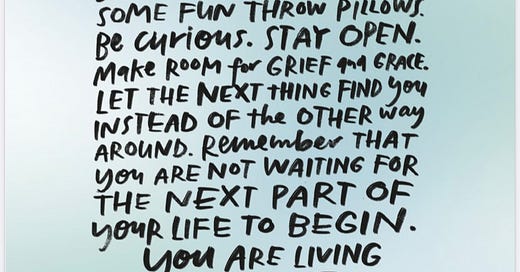 SOME FUN THROW PILLOWS.
Be curious. STAY OPEN.
Make ROOM for GRIEF and GRACE.
LET THE NEXT THING FIND you
INSTEAD OF the OTHER way
AROUND. Remember THAT
you ARE NOT WAITING FOR
THE NEXT PART OF
your LIFE TO BEGIN.
you ARE LIVING